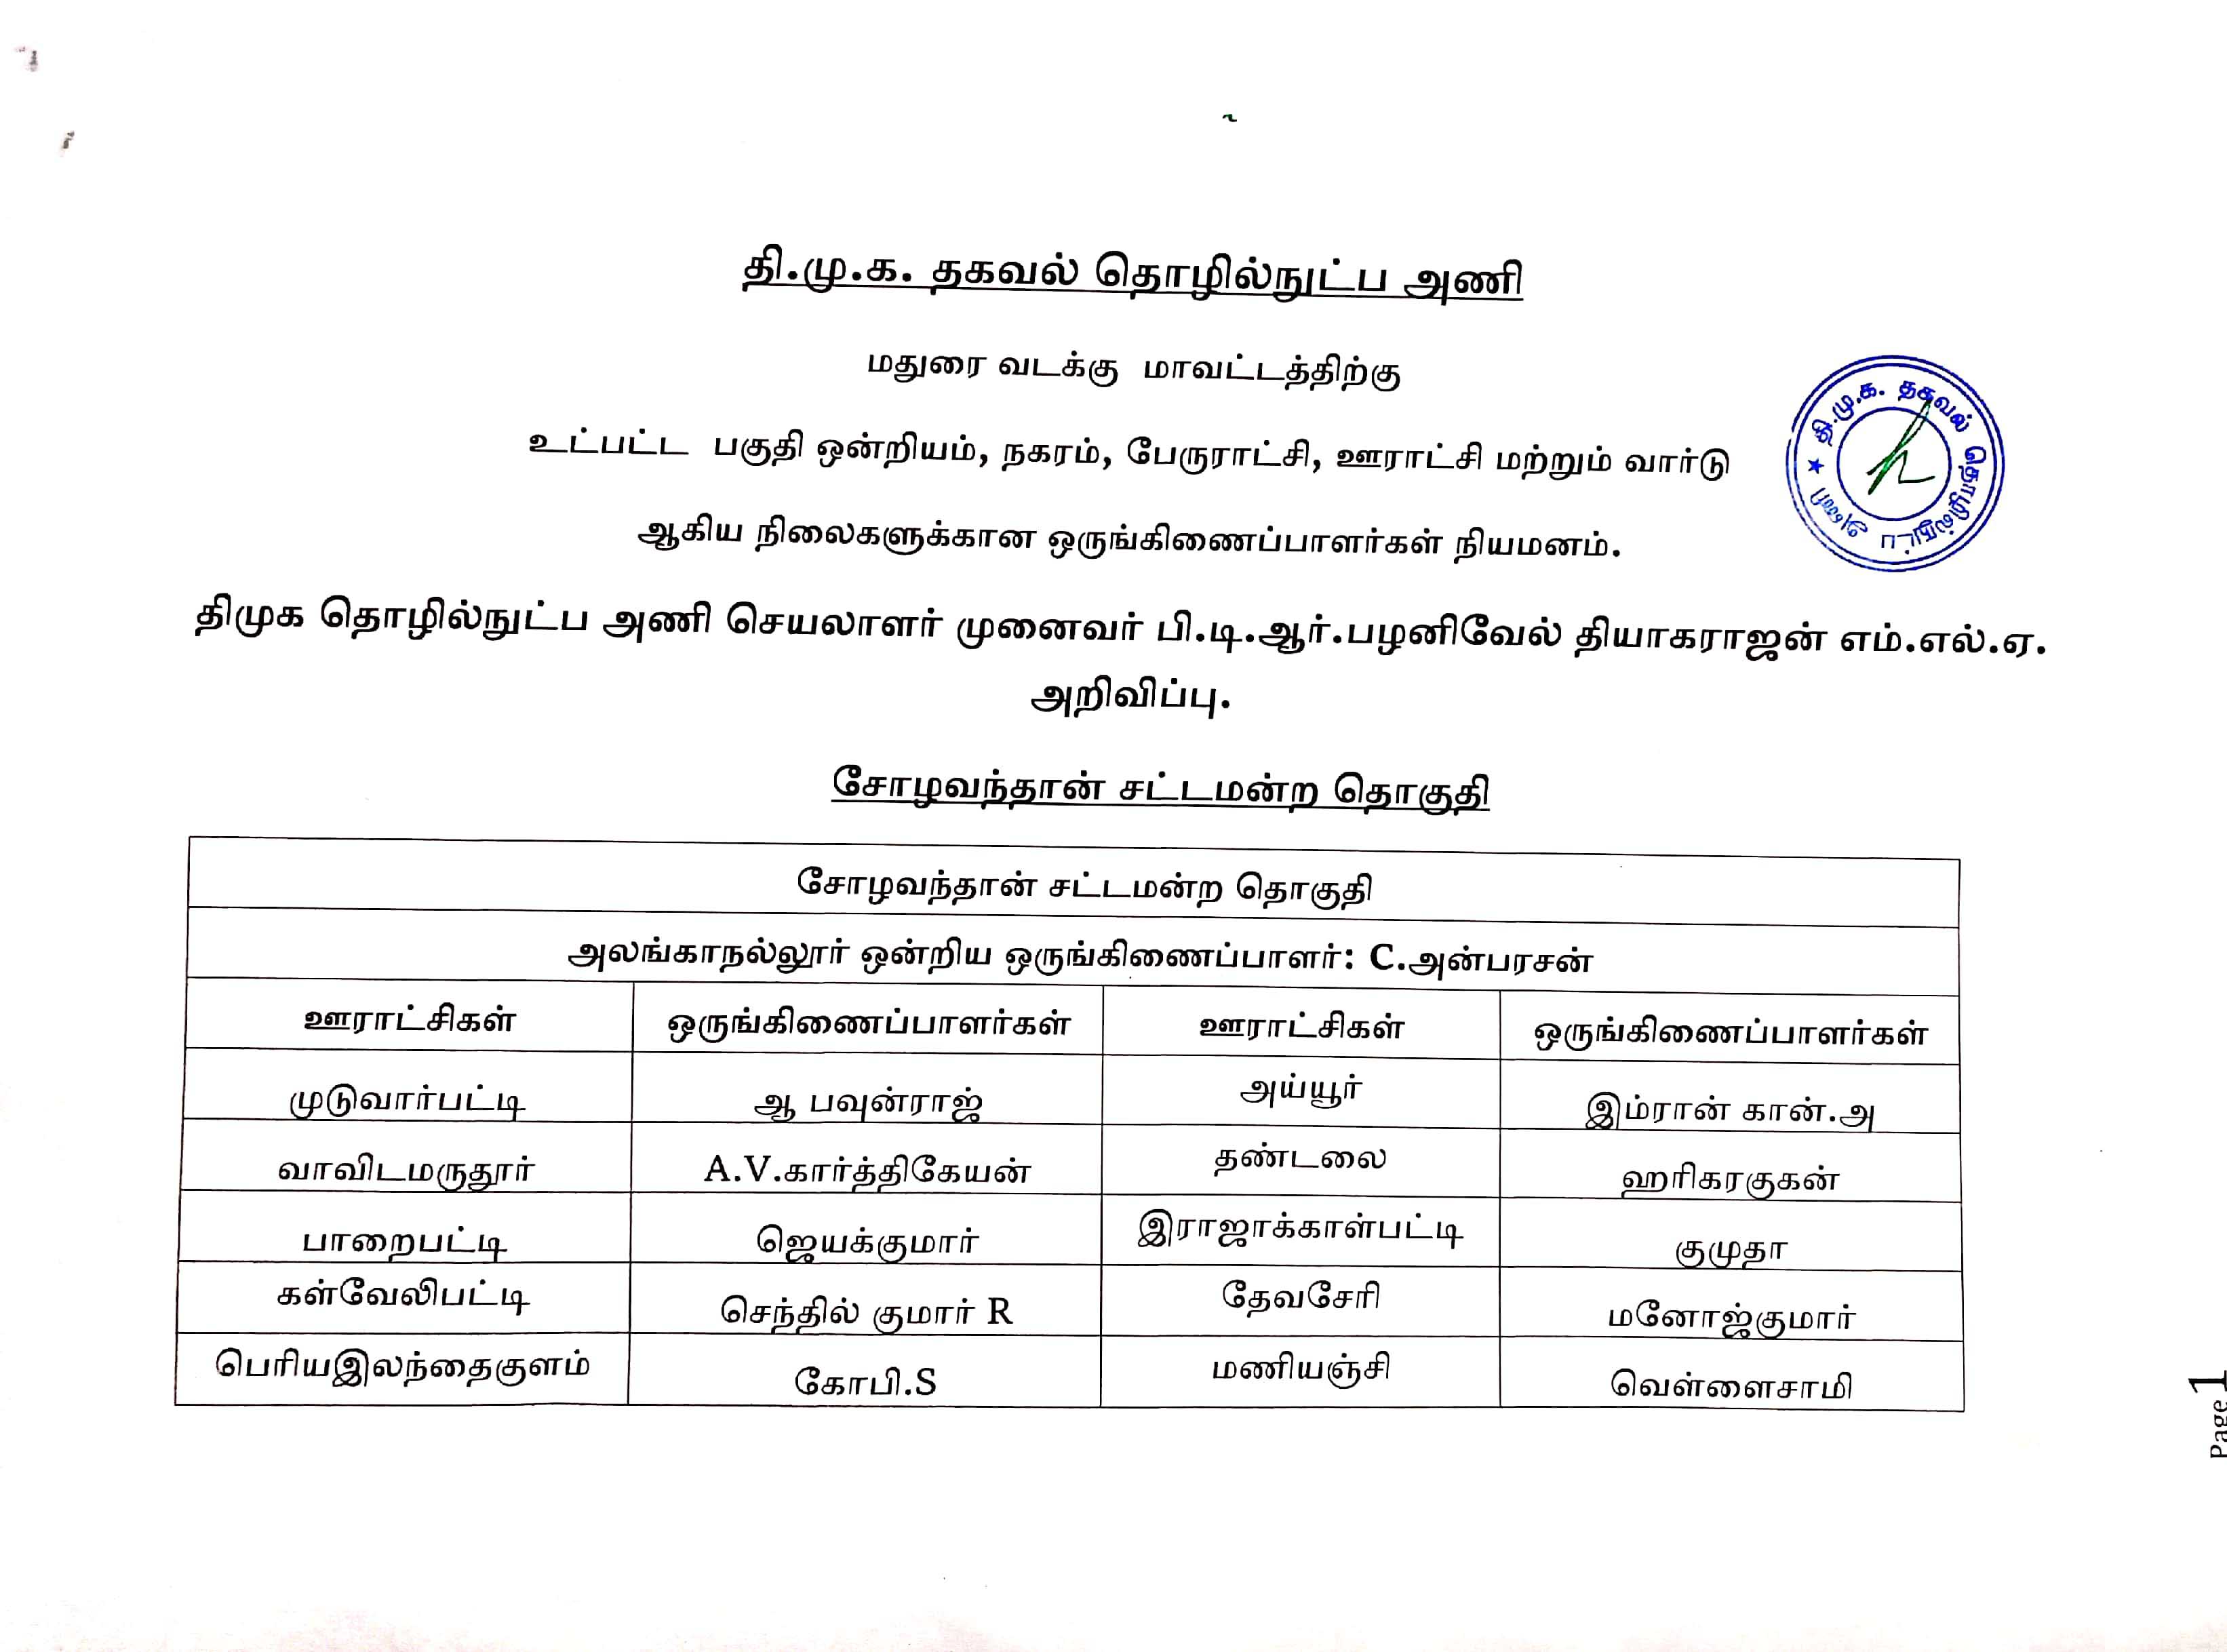 தி.மு.க. தகவல் தொழில்நுட்ப அணி
மதுரை வடக்கு மாவட்டத்திற்கு
உட்பட்ட பகுதி ஒன்றியம், நகரம், பேருராட்சி, ஊராட்சி மற்றும் வார்டு
ஆகிய நிலைகளுக்கான ஒருங்கிணைப்பாளர்கள் நியமனம்.
தி.மு.க. தகவல் தொழில்நுட்ப அணி
திமுக தொழில்நுட்ப அணி செயலாளர் முனைவர் பி.டி.ஆர்.பழனிவேல் தியாகராஜன் எம்.எல்.ஏ.
அறிவிப்பு.
சோழவந்தான் சட்டமன்ற தொகுதி
சோழவந்தான் சட்டமன்ற தொகுதி
அலங்காநல்லூர் ஒன்றிய ஒருங்கிணைப்பாளர்: C.அன்பரசன்
ஊராட்சிகள் ஒருங்கிணைப்பாளர்கள் ஊராட்சிகள் ஒருங்கிணைப்பாளர்கள்
முடுவார்பட்டி ஆ பவுன்ராஜ் அய்யூர் இம்ரான் கான்.அ
வாவிடமருதூர் A.V.கார்த்திகேயன் தண்டலை ஹரிகரகுகன்
பாறைபட்டி ஜெயக்குமார் இராஜாக்காள்பட்டி குமுதா
கள்வேலிபட்டி செந்தில் குமார் R தேவசேரி மனோஜ்குமார்
பெரியஇலந்தைகுளம் கோபி.S மணியஞ்சி வெள்ளைசாமி
Page 1